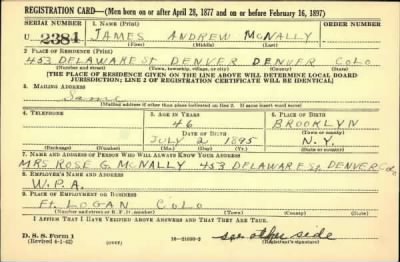 REGISTRATION CARD—(Men born on or after April 28, 1877 and on or before February 16, 1897)
SERIAL NUMBER 1. NAME (Print) ORDER NUMBER
U 2384 JAMES ANDREW McNALLY
(First) (Middle) (Last)
2. PLACE OF RESIDENCE (Print)
453 DELAWARE ST DENVER DENVER COLO
(Number and street) (Town, township, village, or city) (County) (State)
[THE PLACE OF RESIDENCE GIVEN ON THE LINE ABOVE WILL DETERMINE LOCAL BOARD
JURISDICTION; LINE 2 OF REGISTRATION CERTIFICATE WILL BE IDENTICAL]
3. MAILING ADDRESS
Same
[Mailing address if other than place indicated on line 2. If same insert word same]
4. TELEPHONE 5. AGE IN YEARS 6. PLACE OF BIRTH
46 BROOKLYN
DATE OF BIRTH (Town or county)
JULY 2 1895 N.Y.
(Exchange) (Number) (Mo.) (Day) (Yr.) (State or country)
7. NAME AND ADDRESS OF PERSON WHO WILL ALWAYS KNOW YOUR ADDRESS
MRS ROSE G McNALLY 453 DELAWARE ST DENVER Colo
8. EMPLOYER'S NAME AND ADDRESS
W.P.A.
9. PLACE OF EMPLOYMENT OR BUSINESS
Ft. LOGAN COLO
(Number and street or R. F. D. number) (Town) (County) (State)
I AFFIRM THAT I HAVE VERIFIED ABOVE ANSWERS AND THAT THEY ARE TRUE.
D. S. S. Form 1
(Revised 4-1-42) (over) 16—21630-2 see other side
(Registrant's signature)